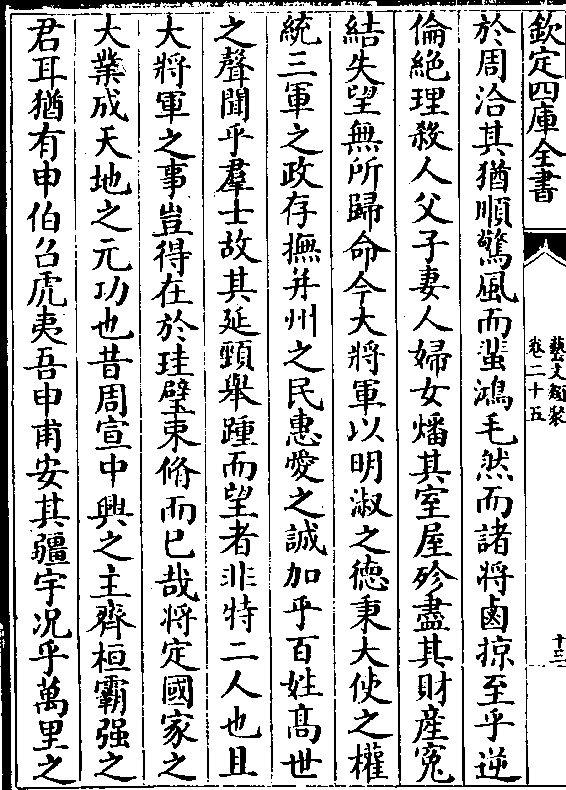 欽定四庫全書
藝文類聚
卷二十五
十三
於周洽其猶順驚風而蜚鴻毛然而諸將鹵掠至乎逆
倫絶理殺人父子妻人婦女燔其室屋殄盡其財產寃
結失望無所歸命今大將軍以明淑之德秉大使之權
統三軍之政存撫并州之民惠愛之誠加乎百姓髙世
之聲聞乎羣士故其延頸舉踵而望者非特二人也且
大將軍之事豈得在於珪璧束脩而已哉將定國家之
大業成天地之元功也昔周宣中興之主齊桓霸强之
君耳猶有申伯召虎夷吾申甫安其疆宇况乎萬里之